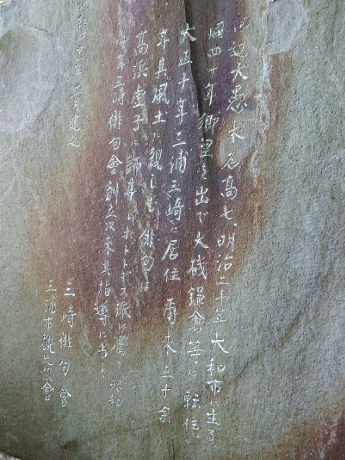 大愚本名高七、明治二十年大和市に生る
四十年郷里を出で大磯鎌倉等に転住、
大正十年三浦三崎に居住爾来三十余
年其風土に親しむ俳句は
高浜虚子に師事しホトトギス派に属す昭和
年三崎俳句会創立以来其指導に当る
二月建之
三崎俳句會
三浦市観光協會